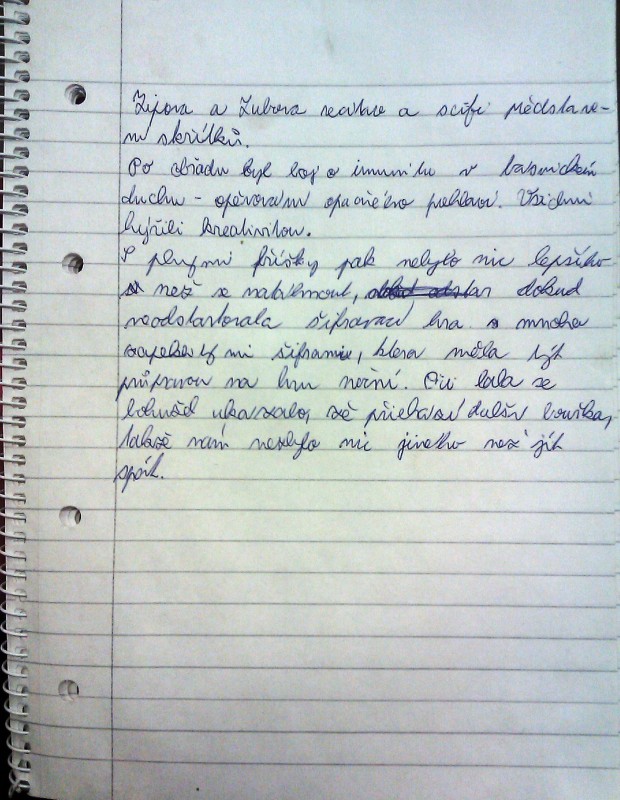 a scifi představe-
ní skřítků.
Po obědu byl boj o imunitu v básnickém
duchu - opěvování opačného pohlaví. Všichni
hýřili kreativitou.
S plnými bříšky pak nebylo nic lepšího
než se natáhnout, dokud
neodstartovala šifrovací hra s mnoha
mi šiframi, která měla být
průpravou na hru noční. Či se
bohužel ukázalo, že přichází další bouřka,
takže nám nezbylo nic jiného než jít
spát.